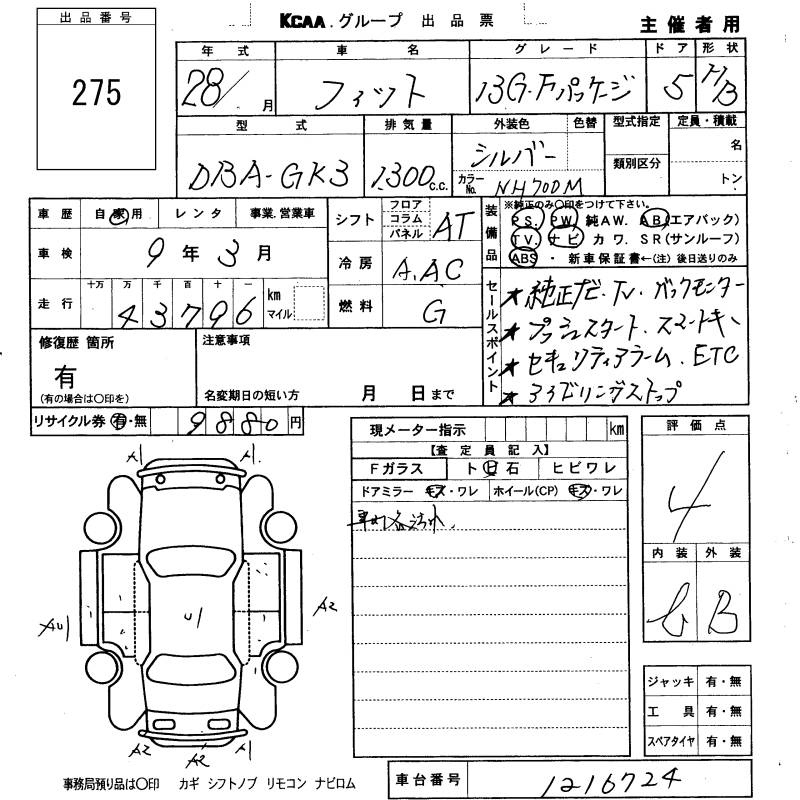 出品番号
KCAA.グループ 出品票
主催者用
275
年式 車名 グレード ドア 形状
28/ 月 フィット 13G・Fパッケージ 5 H/B
型式 排気量 外装色 色替 型式指定 定員・積載
DBA-GK3 1300 c.c. シルバー 名
カラーNo. NH700M 類別区分 トン
車歴 自家用 レンタ 事業.営業車
車検 9年3月
走行 十万 万 千 百 十 一 km マイル
43796
シフト フロア コラム パネル AT
冷房 A.AC
燃料 G
装備品 ※純正のみ○印をつけて下さい。
PS. PW 純AW. AB(エアバック)
TV. ナビ カワ. SR(サンルーフ)
ABS ・ 新車保証書←(注)後日送りのみ
セールスポイント
★純正ナビ.TV.バックモニター
★プッシュスタート.スマートキー
★セキュリティアラーム.ETC
★アイドリングストップ
修復歴 箇所
有
(有の場合は○印を)
注意事項
名変期日の短い方 月 日まで
リサイクル券 有・無 9880円
現メーター指示 km
【査定員記入】
Fガラス ト ビ 石 ヒビワレ
ドアミラー キズ・ワレ ホイール(CP) キズ・ワレ
評価点
4
内装 外装
B
A1 A1
AU1 U1 A2
A2 A2 A1
ジャッキ 有・無
工具 有・無
スペアタイヤ 有・無
事務局預り品は○印 カギ シフトノブ リモコン ナビロム
車台番号 1216724